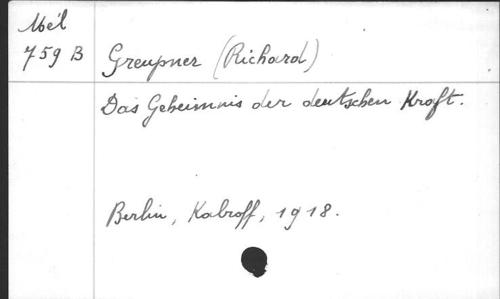 Mél
759 B
Greupner (Richard)
Das Geheimnis der deutschen Kraft.
Berlin, Kabroff, 1918.